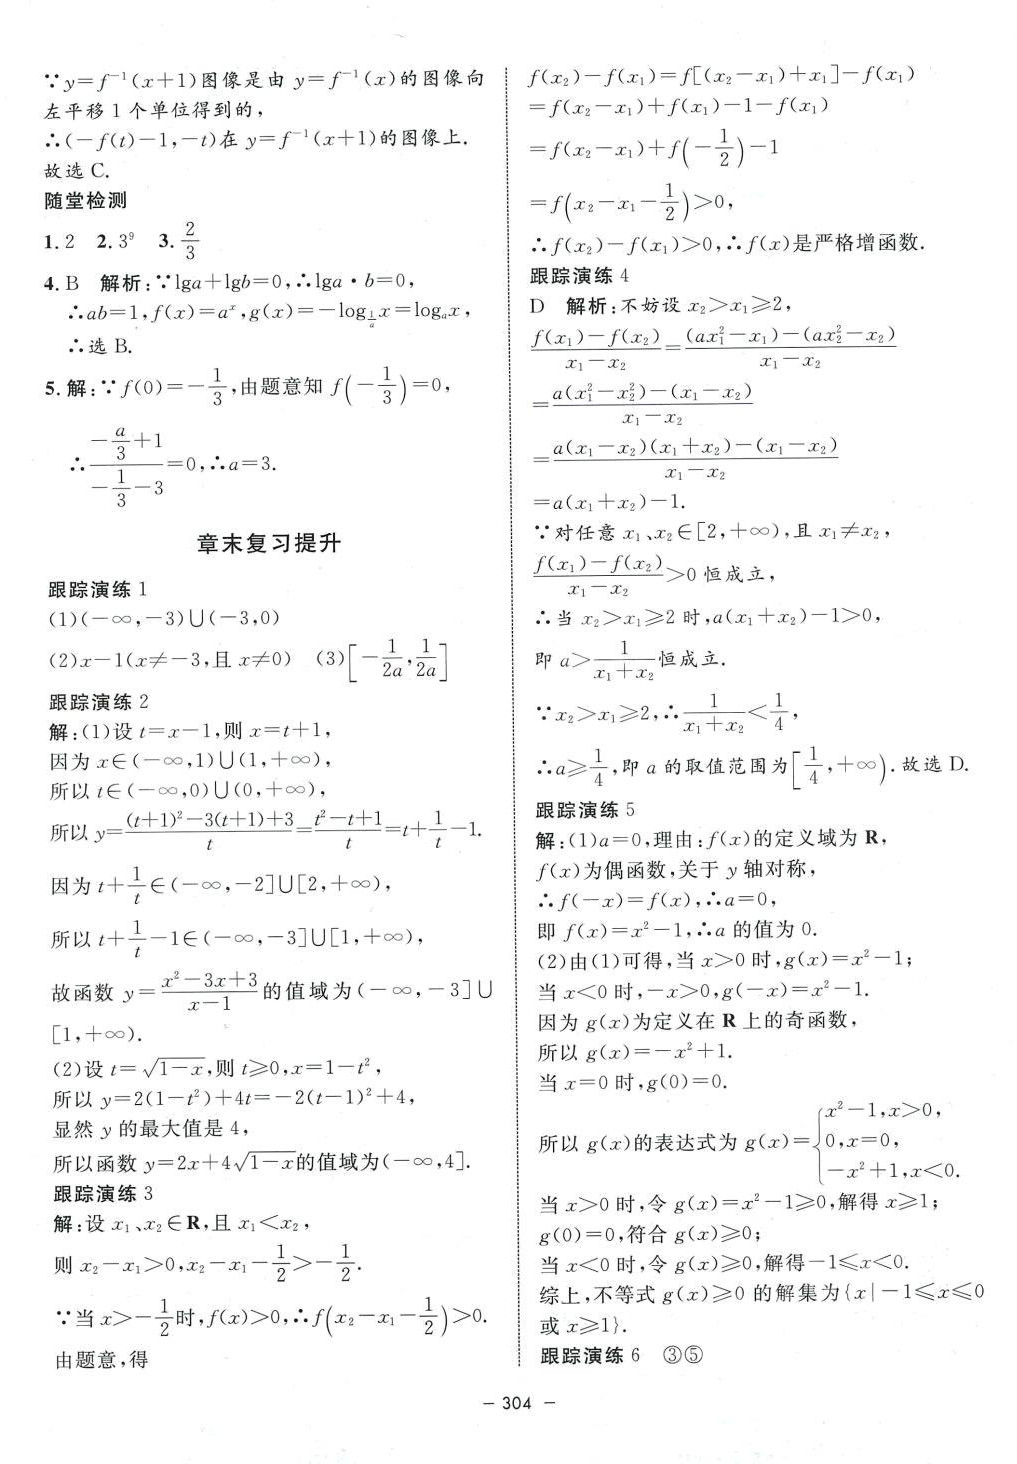 ∵y=f⁻¹(x+1)图像是由 y=f⁻¹(x)的图像向
左平移 1 个单位得到的,
∴(-f(t)-1,-t)在 y=f⁻¹(x+1)的图像上.
故选 C.
随堂检测
1. 2  2. 3⁹  3. 2/3
4. B  解析:∵lga+lgb=0,∴lga·b=0,
∴ab=1,f(x)=aˣ,g(x)=-log_{1/a}x=logₐx,
∴选 B.
5. 解:∵f(0)=-1/3,由题意知 f(-1/3)=0,
∴(-a/3+1)/(-1/3-3)=0,∴a=3.
章末复习提升
跟踪演练 1
(1)(-∞,-3)∪(-3,0)
(2)x-1(x≠-3,且 x≠0)  (3)[-1/2a,1/2a]
跟踪演练 2
解:(1)设 t=x-1,则 x=t+1,
因为 x∈(-∞,1)∪(1,+∞),
所以 t∈(-∞,0)∪(0,+∞),
所以 y=((t+1)²-3(t+1)+3)/t=(t²-t+1)/t=t+1/t-1.
因为 t+1/t∈(-∞,-2]∪[2,+∞),
所以 t+1/t-1∈(-∞,-3]∪[1,+∞),
故函数 y=(x²-3x+3)/(x-1)的值域为(-∞,-3]∪
[1,+∞).
(2)设 t=√(1-x),则 t≥0,x=1-t²,
所以 y=2(1-t²)+4t=-2(t-1)²+4,
显然 y 的最大值是 4,
所以函数 y=2x+4√(1-x)的值域为(-∞,4].
跟踪演练 3
解:设 x₁、x₂∈R,且 x₁<x₂,
则 x₂-x₁>0,x₂-x₁-1/2>-1/2.
∵当 x>-1/2时,f(x)>0,∴f(x₂-x₁-1/2)>0.
由题意,得
f(x₂)-f(x₁)=f[(x₂-x₁)+x₁]-f(x₁)
=f(x₂-x₁)+f(x₁)-1-f(x₁)
=f(x₂-x₁)+f(-1/2)-1
=f(x₂-x₁-1/2)>0,
∴f(x₂)-f(x₁)>0,∴f(x)是严格增函数.
跟踪演练 4
D  解析:不妨设 x₂>x₁≥2,
(f(x₁)-f(x₂))/(x₁-x₂)=((ax₁²-x₁)-(ax₂²-x₂))/(x₁-x₂)
=(a(x₁²-x₂²)-(x₁-x₂))/(x₁-x₂)
=(a(x₁-x₂)(x₁+x₂)-(x₁-x₂))/(x₁-x₂)
=a(x₁+x₂)-1.
∵对任意 x₁、x₂∈[2,+∞),且 x₁≠x₂,
(f(x₁)-f(x₂))/(x₁-x₂)>0 恒成立,
∴当 x₂>x₁≥2 时,a(x₁+x₂)-1>0,
即 a>1/(x₁+x₂)恒成立.
∵x₂>x₁≥2,∴1/(x₁+x₂)<1/4,
∴a≥1/4,即 a 的取值范围为[1/4,+∞).故选 D.
跟踪演练 5
解:(1)a=0,理由:f(x)的定义域为 R,
f(x)为偶函数,关于 y 轴对称,
∴f(-x)=f(x),∴a=0,
即 f(x)=x²-1,∴a 的值为 0.
(2)由(1)可得,当 x>0 时,g(x)=x²-1;
当 x<0 时,-x>0,g(-x)=x²-1.
因为 g(x)为定义在 R 上的奇函数,
所以 g(x)=-x²+1.
当 x=0 时,g(0)=0.
所以 g(x)的表达式为 g(x)={x²-1,x>0,
0,x=0,
-x²+1,x<0.
当 x>0 时,令 g(x)=x²-1≥0,解得 x≥1;
g(0)=0,符合 g(x)≥0;
当 x<0 时,令 g(x)≥0,解得-1≤x<0.
综上,不等式 g(x)≥0 的解集为{x|-1≤x≤0
或 x≥1}.
跟踪演练 6  ③⑤
- 304 -